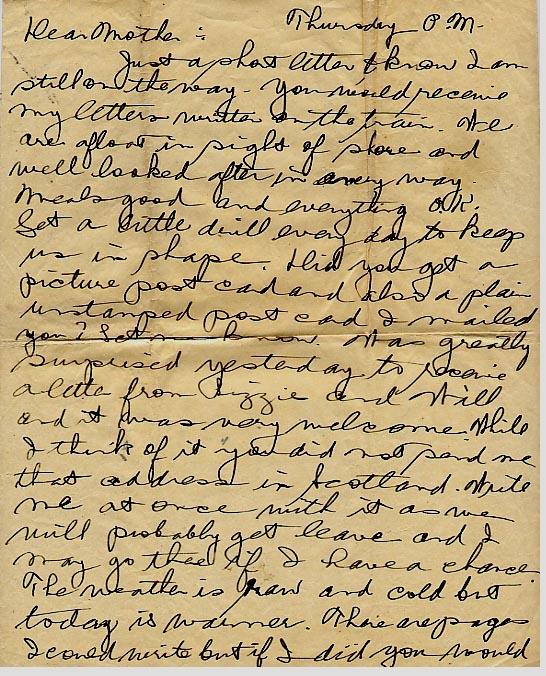 Dear Mother :      Thursday P.M.
Just a short letter to know I am
still on the way. You would receive
my letters written on the train. We
are afloat in sight of shore and
well looked after in every way.
Meals good and everything O.K.
Get a little drill every day to keep
us in shape. Did you get a
picture post card and also a plain
unstamped post card I mailed
you? Let me know. Was greatly
surprised yesterday to receive
a letter from Lizzie and Will
and it was very welcome. While
I think of it you did not send me
that address in Scotland. Write
me at once with it as we
will probably get leave and I
may go there if I have a chance.
The weather is raw and cold but
today is warmer. There are pages
I could write but if I did you would